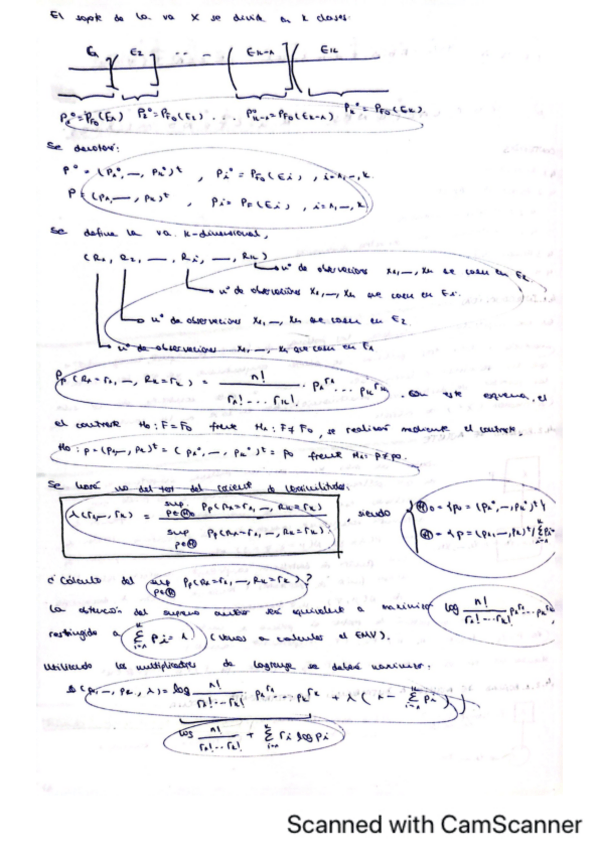 El soporte de la va X se divide en k clases:
E₁ E₂ ... Eₖ₋₁ Eₖ
P₁⁰=P_F₀(E₁) P₂⁰=P_F₀(E₂) ... Pₖ₋₁⁰=P_F₀(Eₖ₋₁) Pₖ⁰=P_F₀(Eₖ)
Se denota:
P⁰=(P₁⁰,—,Pₖ⁰)ᵗ , Pᵢ⁰=P_F₀(Eᵢ) , i=1,—,k
P=(P₁,—,Pₖ)ᵗ , Pᵢ=P_F(Eᵢ) , i=1,—,k
Se define la va. k-dimensional,
(R₁, R₂, —, Rᵢ, —, Rₖ)
nº de observaciones x₁,—,xₙ que caen en Eₖ
nº de observaciones x₁,—,xₙ que caen en Eᵢ.
nº de observaciones x₁,—,xₙ que caen en E₂.
nº de observaciones x₁,—,xₙ que caen en E₁
P_p(R₁=r₁,—,Rₖ=rₖ) = n!/(r₁!...rₖ!) · p₁^r₁ ... pₖ^rₖ . Con este esquema, el
el contraste H₀: F=F₀ frente H₁: F≠F₀, se realizará mediante el contraste.
H₀: p=(p₁,—,pₖ)ᵗ=(p₁⁰,—,pₖ⁰)ᵗ=p₀ frente H₁: p≠p₀.
Se hará uso del test del cociente de verosimilitudes:
λ(r₁,—,rₖ) = sup p∈Θ₀ P_p(R₁=r₁,—,Rₖ=rₖ) / sup p∈Θ P_p(R₁=r₁,—,Rₖ=rₖ) , siendo Θ₀={p₀=(p₁⁰,—,pₖ⁰)ᵗ}
Θ={p=(p₁,—,pₖ)ᵗ/Σᵢ₌₁ᵏ pᵢ=
¿Cálculo del sup p∈Θ P_p(R₁=r₁,—,Rₖ=rₖ)?
La obtención del supremo anterior será equivalente a maximizar log n!/(r₁!...rₖ!) p₁^r₁...pₖ^rₖ
restringido a Σᵢ₌₁ᵏ pᵢ=1 (vamos a calcular el EMV).
Utilizando los multiplicadores de Lagrange se deberá maximizar:
(p₁,—,pₖ,λ)=log n!/(r₁!...rₖ!) p₁^r₁...pₖ^rₖ + λ(1-Σᵢ₌₁ᵏ pᵢ)
log n!/(r₁!...rₖ!) + Σᵢ₌₁ᵏ rᵢ log pᵢ
Scanned with CamScanner